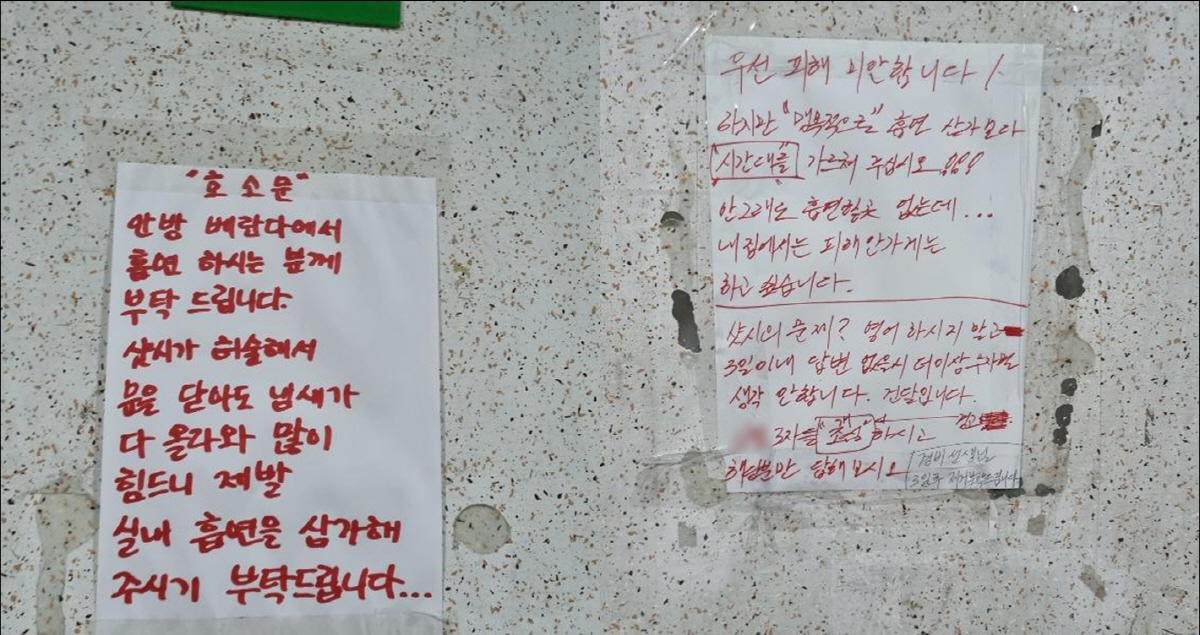 "호소문"
안방 베란다에서
흡연 하시는 분께
부탁 드립니다.
샷시가 허술해서
문을 닫아도 냄새가
다 올라와 많이
힘드니 제발
실내 흡연을 삼가해
주시기 부탁드립니다...
우선 피해 미안합니다 /.
하지만 "맹목적으로" 흡연 삼가보다
시간대를 가르쳐 주십시오 !!!
안그래도 흡연할곳 없는데...
내집에서는 피해안가게는
하고 싶습니다.
샷시의 문제? 영어 하시지 말고
3일이내 답변 없을시 더이상
생각 안합니다. 건달입니다.
3자를 하시고
해당분만 답해 보시오
경비선생님
3일후 제거부탁드립니다